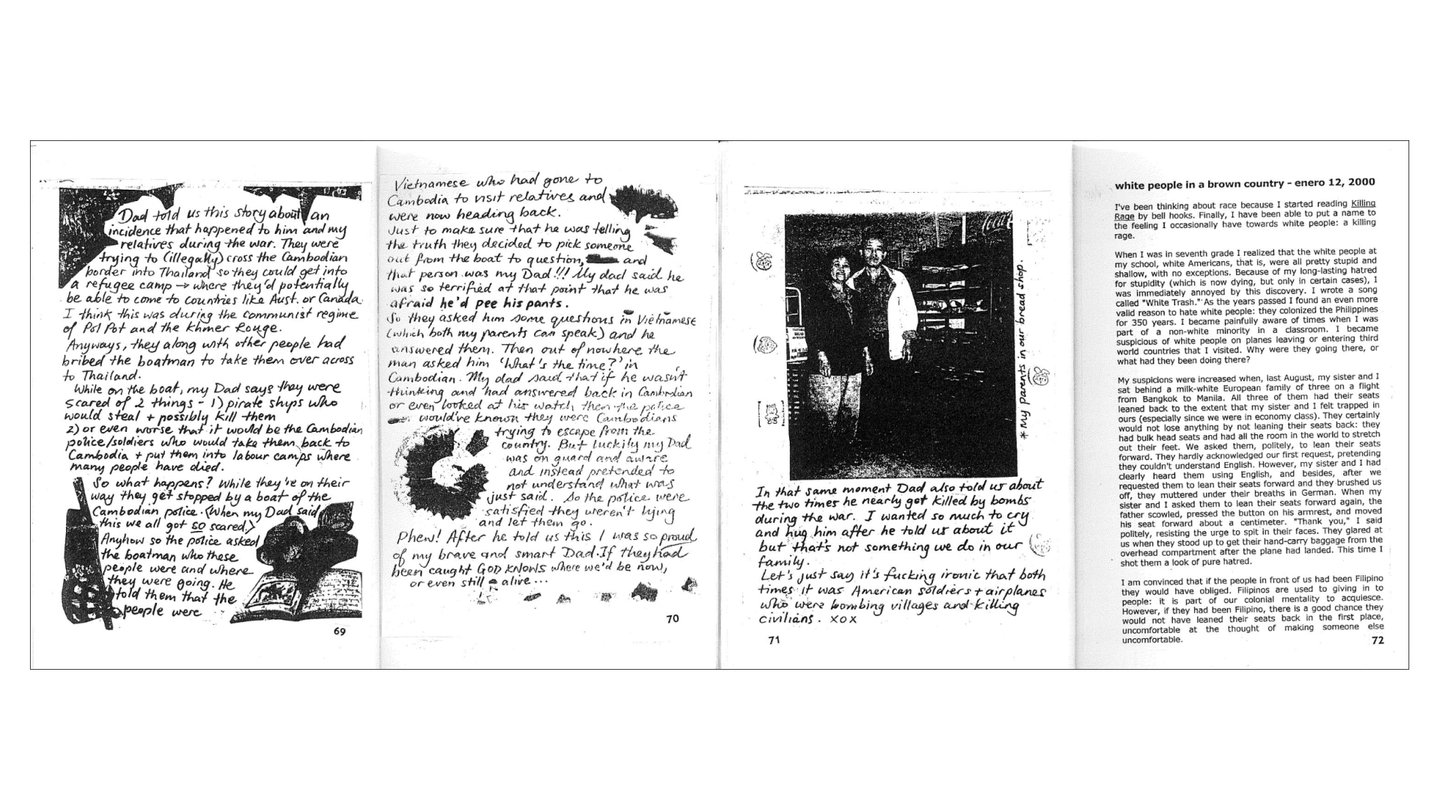 Dad told us this story about an
incidence that happened to him and my
relatives during the war. They were
trying to (illegally) cross the Cambodian
border into Thailand so they could get into
a refugee camp → where they'd potentially
be able to come to countries like Aust. or Canada.
I think this was during the communist regime
of Pol Pot and the Khmer Rouge.
Anyways, they along with other people had
bribed the boatman to take them over across
to Thailand.
While on the boat, my Dad says they were
scared of 2 things - 1) pirate ships who
would steal + possibly kill them
2) or even worse that it would be the Cambodian
police/soldiers who would take them back to
Cambodia + put them into labour camps where
many people have died.
So what happens? While they're on their
way they get stopped by a boat of the
Cambodian police. (When my Dad said
this we all got so scared)
Anyhow so the police asked
the boatman who these
people were and where
they were going. He
told them that the
people were
69
Vietnamese who had gone to
Cambodia to visit relatives and
were now heading back.
Just to make sure that he was telling
the truth they decided to pick someone
out from the boat to question, and
that person was my Dad!!! My dad said he
was so terrified at that point that he was
afraid he'd pee his pants.
So they asked him some questions in Vietnamese
(which both my parents can speak) and he
answered them. Then out of nowhere the
man asked him 'What's the time?' in
Cambodian. My dad said that if he wasn't
thinking and had answered back in Cambodian
or even looked at his watch then the police
would've known they were Cambodians
trying to escape from the
country. But luckily my Dad
was on guard and aware
and instead pretended to
not understand what was
just said. So the police were
satisfied they weren't lying
and let them go.
Phew! After he told us this I was so proud
of my brave and smart Dad. If they had
been caught GOD KNOWS where we'd be now,
or even still alive...
70
* My Parents in our bread shop.
In that same moment Dad also told us about
the two times he nearly got killed by bombs
during the war. I wanted so much to cry
and hug him after he told us about it
but that's not something we do in our
family.
Let's just say it's fucking ironic that both
times it was American soldiers + airplanes
who were bombing villages and killing
civilians. xox
71
white people in a brown country - enero 12, 2000
I've been thinking about race because I started reading Killing
Rage by bell hooks. Finally, I have been able to put a name to
the feeling I occasionally have towards white people: a killing
rage.
When I was in seventh grade I realized that the white people at
my school, white Americans, that is, were all pretty stupid and
shallow, with no exceptions. Because of my long-lasting hatred
for stupidity (which is now dying, but only in certain cases), I
was immediately annoyed by this discovery. I wrote a song
called "White Trash." As the years passed I found an even more
valid reason to hate white people: they colonized the Philippines
for 350 years. I became painfully aware of times when I was
part of a non-white minority in a classroom. I became
suspicious of white people on planes leaving or entering third
world countries that I visited. Why were they going there, or
what had they been doing there?
My suspicions were increased when, last August, my sister and I
sat behind a milk-white European family of three on a flight
from Bangkok to Manila. All three of them had their seats
leaned back to the extent that my sister and I felt trapped in
ours (especially since we were in economy class). They certainly
would not lose anything by not leaning their seats back: they
had bulk head seats and had all the room in the world to stretch
out their feet. We asked them, politely, to lean their seats
forward. They hardly acknowledged our first request, pretending
they couldn't understand English. However, my sister and I had
clearly heard them using English, and besides, after we
requested them to lean their seats forward and they brushed us
off, they muttered under their breaths in German. When my
sister and I asked them to lean their seats forward again, the
father scowled, pressed the button on his armrest, and moved
his seat forward about a centimeter. "Thank you," I said
politely, resisting the urge to spit in their faces. They glared at
us when they stood up to get their hand-carry baggage from the
overhead compartment after the plane had landed. This time I
shot them a look of pure hatred.
I am convinced that if the people in front of us had been Filipino
they would have obliged. Filipinos are used to giving in to
people: it is part of our colonial mentality to acquiesce.
However, if they had been Filipino, there is a good chance they
would not have leaned their seats back in the first place,
uncomfortable at the thought of making someone else
uncomfortable.
72